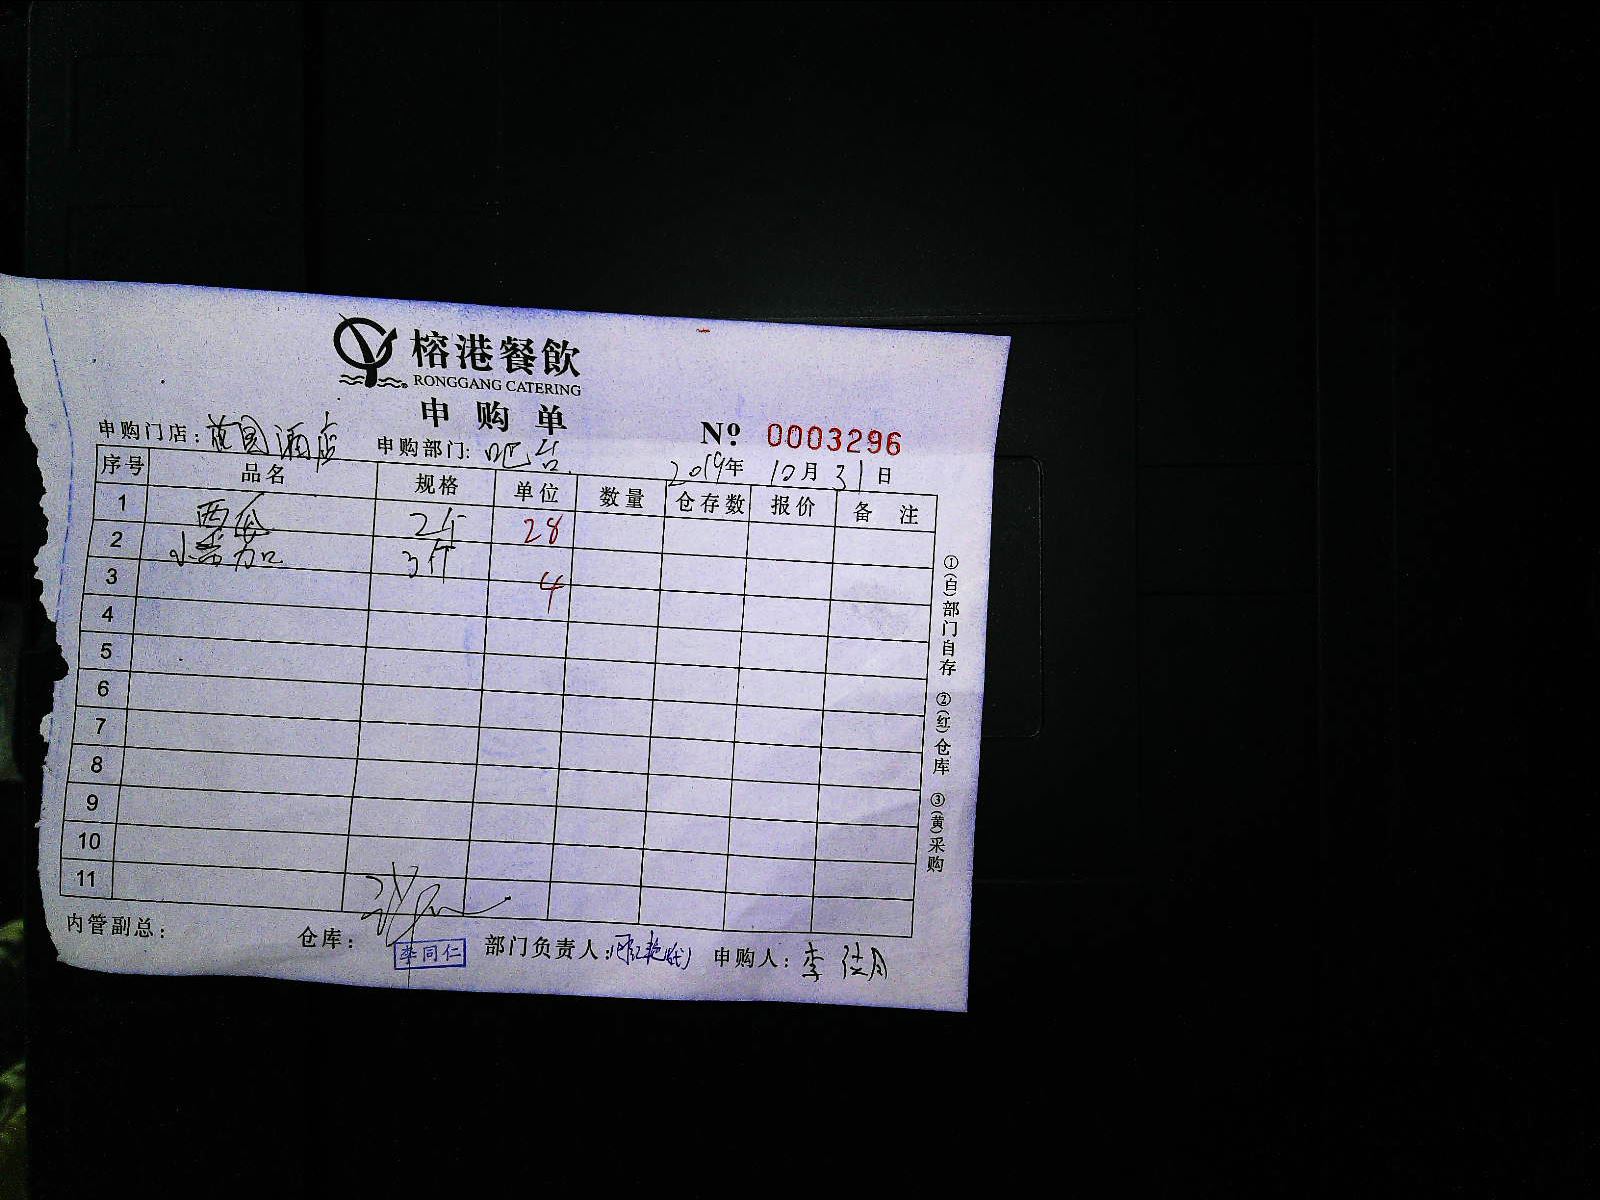 榕港餐飲
RONGGANG CATERING
申购单
申购门店: 花园酒店 申购部门: 吧台 Nº 0003296
2019年 10月 31日
序号 品名 规格 单位 数量 仓存数 报价 备注
1 西瓜 2个 28
2 小番加 3斤 4
3
4
5
6
7
8
9
10
11
内管副总: 仓库: 李同仁 部门负责人: 申购人: 李
①(白)部门自存 ②(红)仓库 ③(黄)采购